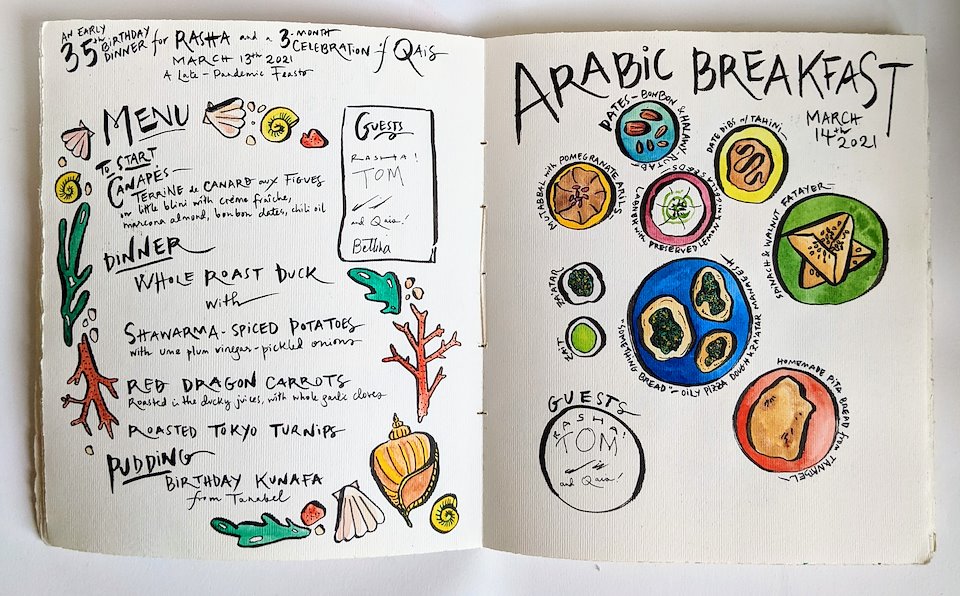 AN EARLY
35th BIRTHDAY
DINNER for RASHA and a 3-MONTH
CELEBRATION of QAIS
MARCH 13th 2021
A Late-Pandemic Feast
MENU
TO START
CANAPÉS—
TERRINE de CANARD aux FIGUES
on little blini with crème fraîche,
marcona almond, bonbon dates, chili oil
DINNER
WHOLE ROAST DUCK
with
SHAWARMA-SPICED POTATOES
with ume plum vinegar-pickled onions
RED DRAGON CARROTS
Roasted in the ducky juices, with whole garlic cloves
ROASTED TOKYO TURNIPS
PUDDING
BIRTHDAY KUNAFA
from Tanabel
GUESTS
RASHA!
TOM
and Qais!
Bettina
ARABIC BREAKFAST
MARCH
14th 2021
DATES—BONBON & HALAWY RUTAB
DATE DIBS w/ TAHINI
MUTABBAL with POMEGRANATE ARILS
LABNAH with PRESERVED LEMON & NIGELLA SEEDS
SPINACH & WALNUT FATAYER
ZA'ATAR
ZAIT
"SOMETHING BREAD"—OILY PIZZA DOUGH & ZA'ATAR MANAEESH
HOMEMADE PITA BREAD from TANABEL
GUESTS
RASHA!
TOM
and Qais!